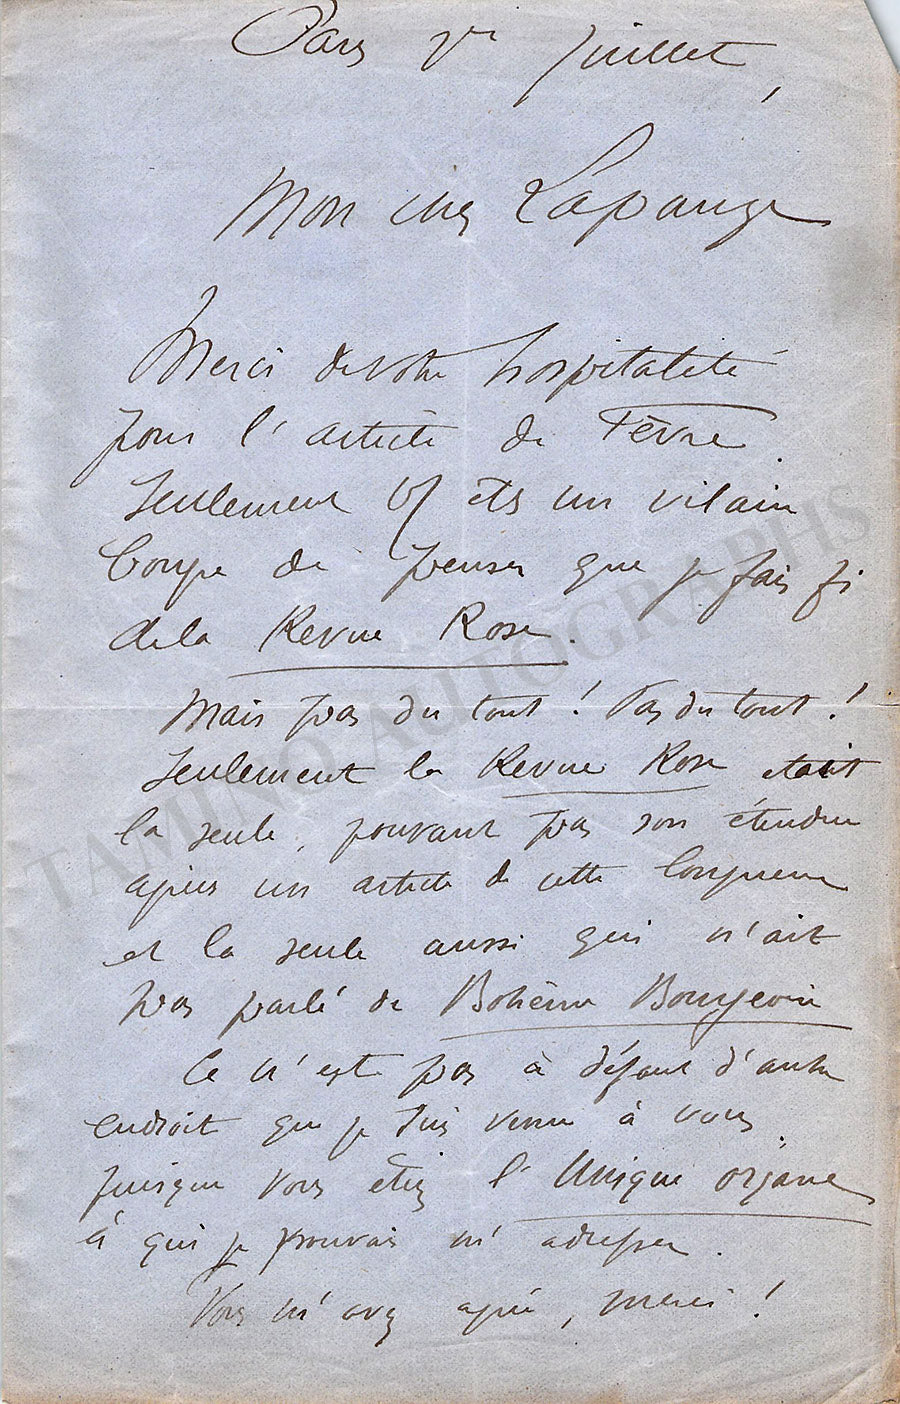 Paris 1er Juillet,
Mon cher Lapauze
Merci de votre hospitalité
pour l'article de Fèvre.
Seulement êtes un vilain
de penser que je fais fi
de la Revue Rose.
Mais pas du tout ! Pas du tout !
Seulement la Revue Rose était
la seule, pouvant pas son étendue
un article de cette longueur
et la seule aussi qui n'ait
pas parlé de Bohème Bourgeoise
Ce n'est pas à défaut d'autre
endroit que je suis venu à vous
puisque vous étiez l'Unique organe
à qui je pouvais m'adresser.
Vous m'avez , merci !
TAMINO AUTOGRAPHS